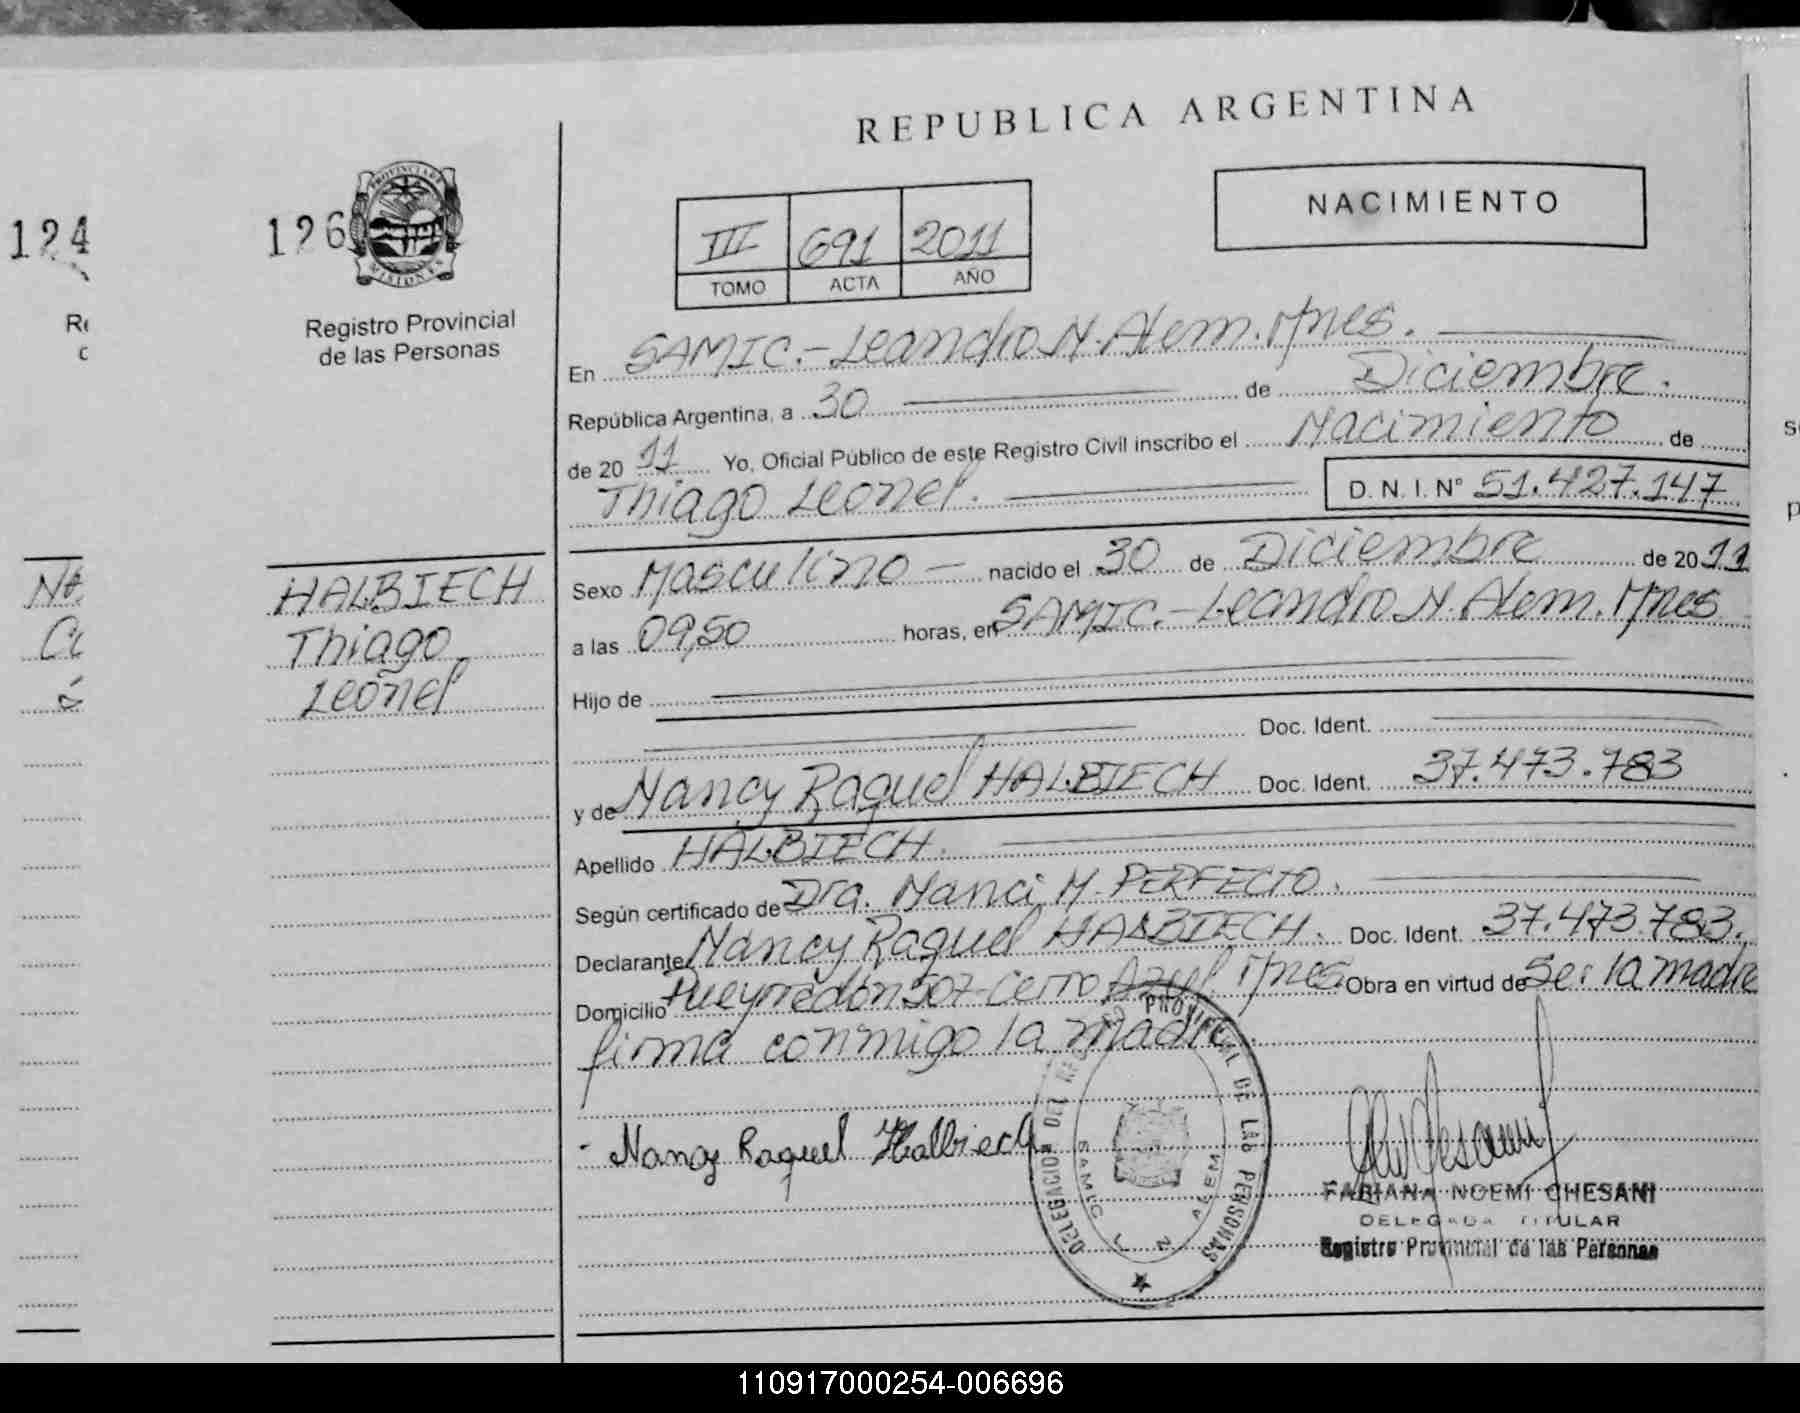 REPUBLICA ARGENTINA
NACIMIENTO
124
126
PROVINCIA DE
MISIONES
Registro Provincial
de las Personas
III 691 2011
TOMO ACTA AÑO
En SAMIC.- Leandro N. Alem. Mnes.
República Argentina, a 30 de Diciembre.
de 20 11 Yo, Oficial Público de este Registro Civil inscribo el Nacimiento de
Thiago Leonel. D. N. I. Nº 51.427.147
HALBIECH
Thiago
Leonel
Sexo Masculino nacido el 30 de Diciembre de 20 11
a las 09,50 horas, en SAMIC.- Leandro N. Alem. Mnes
Hijo de
Doc. Ident.
y de Nancy Raquel HALBIECH Doc. Ident. 37.473.783
Apellido HALBIECH.
Según certificado de Dra. Nanci M. PERFECTO.
Declarante Nancy Raquel HALBIECH. Doc. Ident. 37.473.783.
Domicilio Pueyrredón 507- Cerro Azul Mnes Obra en virtud de Ser la madre
firma conmigo la madre.
Nancy Raquel Halbiech
DELEGACION DEL REGISTRO PROVINCIAL DE LAS PERSONAS
SAMIC L N ALEM
FABIANA NOEMI CHESANI
DELEGADA TITULAR
Registro Provincial de las Personas
110917000254-006696